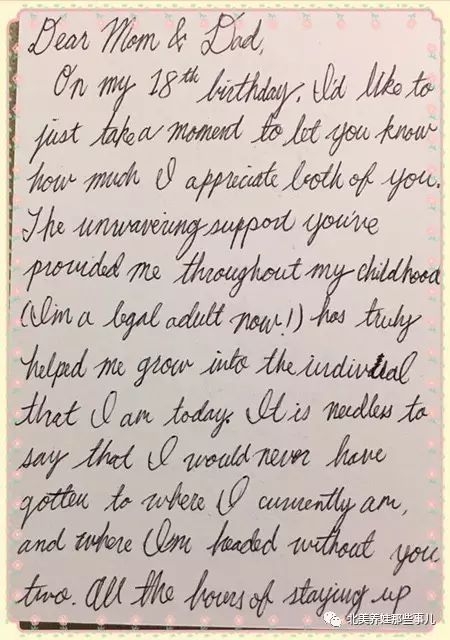 Dear Mom & Dad,
On my 18th birthday, I'd like to
just take a moment to let you know
how much I appreciate both of you.
The unwavering support you've
provided me throughout my childhood
(I'm a legal adult now!) has truly
helped me grow into the individual
that I am today. It is needless to
say that I would never have
gotten to where I currently am,
and where I'm headed without you
two. All the hours of staying up
北美养娃那些事儿